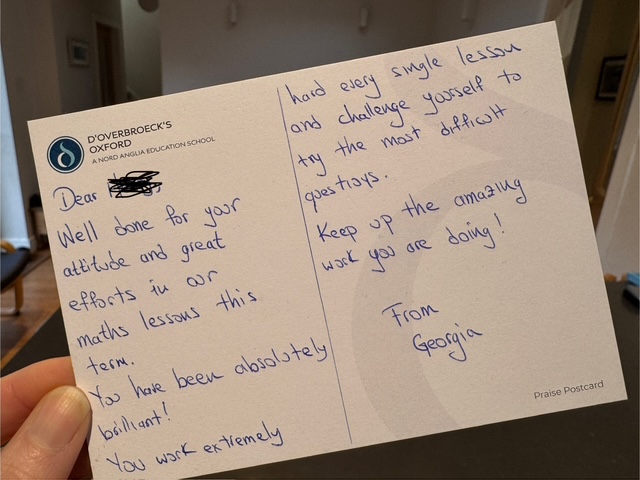 D'OVERBROECK'S
OXFORD
A NORD ANGLIA EDUCATION SCHOOL
Dear
Well done for your
attitude and great
efforts in our
maths lessons this
term.
You have been absolutely
brilliant!
You work extremely
hard every single lesson
and challenge yourself to
try the most difficult
questions.
Keep up the amazing
work you are doing!
From
Georgia
Praise Postcard